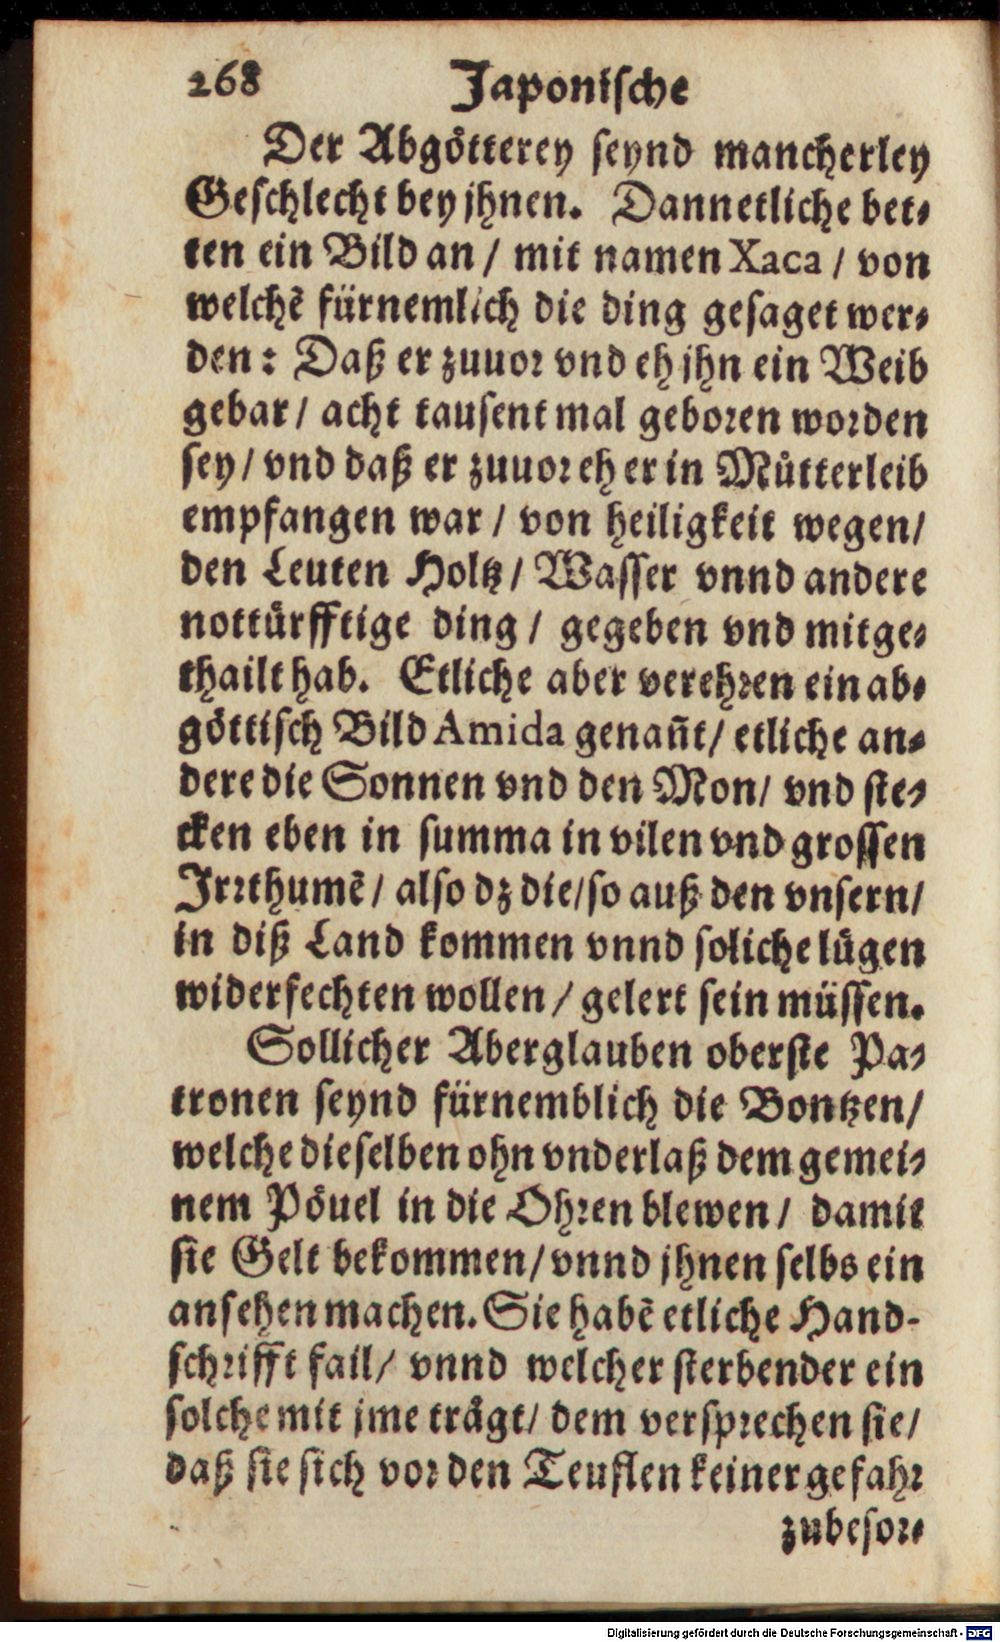 268 Japonische
Der Abgötterey seynd mancherley
Geschlecht bey jhnen. Dann etliche bet⸗
ten ein Bild an / mit namen Xaca / von
welchē fürnemlich die ding gesaget wer⸗
den: Daß er zuuor vnd eh jhn ein Weib
gebar / acht tausent mal geboren worden
sey / vnd daß er zuuor eh er in Mütterleib
empfangen war / von heiligkeit wegen /
den Leuten Holtz / Wasser vnnd andere
nottürfftige ding / gegeben vnd mitge⸗
thailt hab. Etliche aber verehren ein ab⸗
göttisch Bild Amida genañt / etliche an⸗
dere die Sonnen vnd den Mon / vnd ste⸗
cken eben in summa in vilen vnd grossen
Irrthumē / also dz die / so auß den vnsern /
in diß Land kommen vnnd soliche lügen
widerfechten wollen / gelert sein müssen.
Sollicher Aberglauben oberste Pa⸗
tronen seynd fürnemblich die Bontzen /
welche dieselben ohn vnderlaß dem gemei⸗
nem Pövel in die Ohren blewen / damit
sie Gelt bekommen / vnnd jhnen selbs ein
ansehen machen. Sie habē etliche Hand-
schrifft fail / vnnd welcher sterbender ein
solche mit jme trägt / dem versprechen sie /
daß sie sich vor den Teuflen keiner gefahr
zubesor⸗
Digitalisierung gefördert durch die Deutsche Forschungsgemeinschaft - DFG